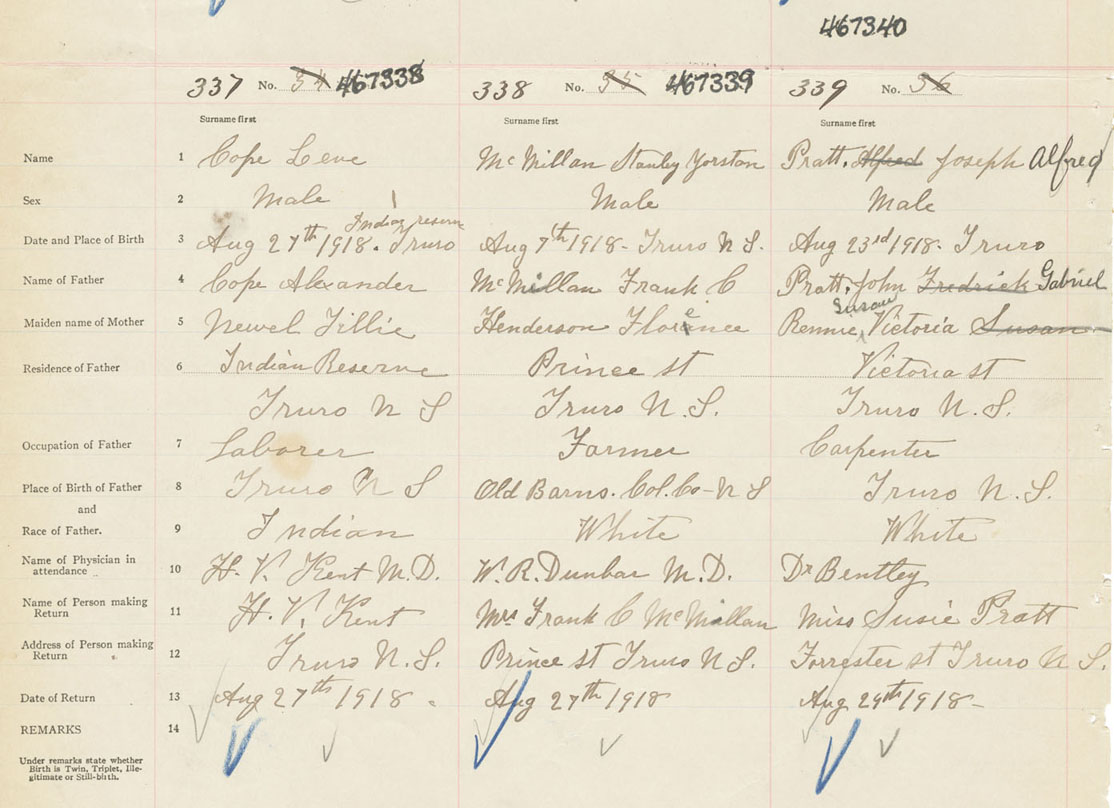 467340
337 No. 34 467338 338 No. 35 467339 339 No. 36
Surname first Surname first Surname first
Name 1 Cope Leve McMillan Stanly Yorston Pratt. Alfred Joseph Alfred
Sex 2 Male Male Male
Indian reserve
Date and Place of Birth 3 Aug 27th 1918. Truro Aug 7th 1918- Truro N S. Aug 23rd 1918. Truro
Name of Father 4 Cope Alexander McMillan Frank C Pratt, John Fredrick Gabriel
Susan
Maiden name of Mother 5 Newel Tillie Henderson Florence Rennie, Victoria Susan
Residence of Father 6 Indian Reserve Prince st Victoria st
Truro N S Truro N.S. Truro N.S.
Occupation of Father 7 Laborer Farmer Carpenter
Place of Birth of Father 8 Truro N S Old Barns. Col. Co- N S Truro N.S.
and
Race of Father. 9 Indian White White
Name of Physician in
attendance 10 H. V. Kent M.D. W. R. Dunbar M.D. Dr Bentley
Name of Person making
Return 11 H. V. Kent Mrs Frank C McMillan Miss Susie Pratt
Address of Person making
Return 12 Truro N.S. Prince st Truro N S. Forrester st Truro N S.
Date of Return 13 Aug 27th 1918. Aug 27th 1918 Aug 29th 1918-
REMARKS 14
Under remarks state whether
Birth is Twin, Triplet, Ille-
gitimate or Still-birth.